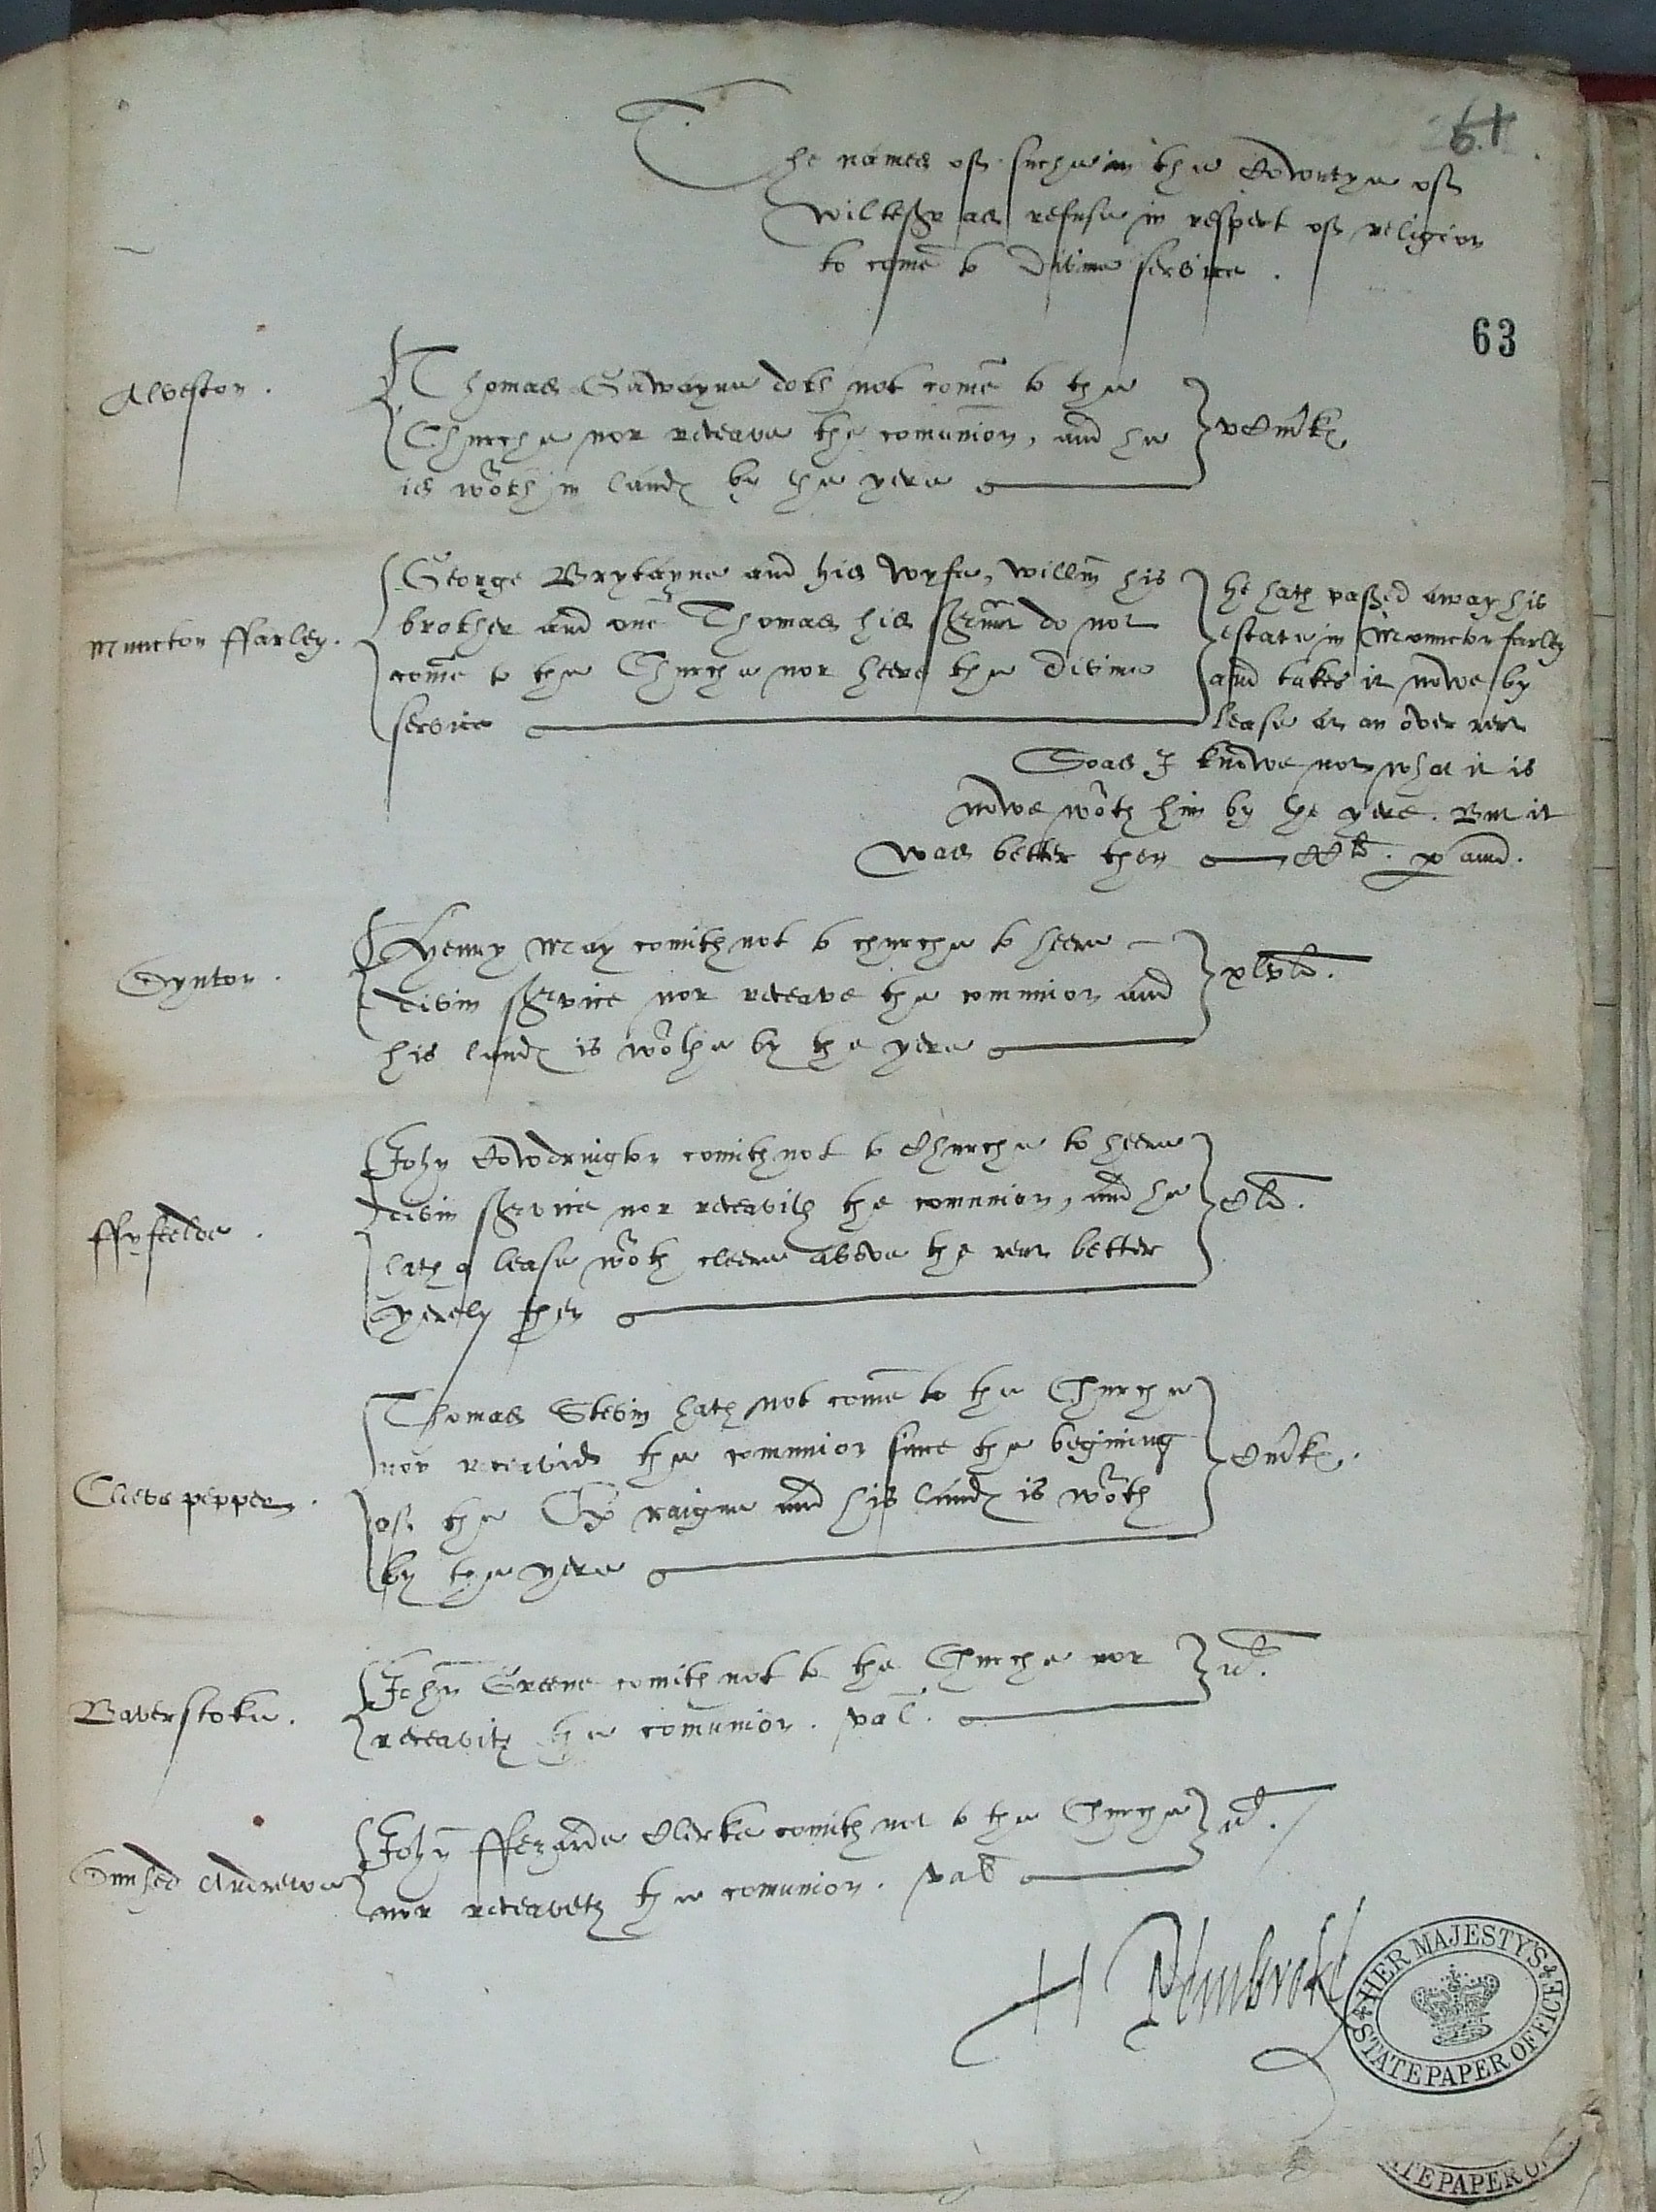 61
The names of suche in the Cowntye of
Wiltesher as refuse in respect of religion
to come to Divine service.
63
Alveston.
Thomas Gawayne doth not come to the
Churche nor receave the comunion, and he
is worth in land by the yere
Muncton ffarley.
George Brytayne and his wyfe, Willm his
brother and one Thomas his servant do not
come to the Churche nor heere the Divine
service
he hath passed away his
estate in Mounctonfarley
and takes it nowe by
lease at an over rent
Soas I knowe not what it is
nowe worth him by the yere. But it
was better then
Dynton.
Henry May comith not to churche to heere
divin service nor receave the comunion and
his land is worthe by the yere
xlvli.
ffyfeelde.
John Cowdrington comith not to Churche to heere
divin service nor receavith the comunion, and he
hath a lease worth cleere above the rent better
yerely then
Cli.
Clieve pepper.
Thomas Stevin hath not come to the Churche
nor receavid the comunion since the begininng
of the Q raigne and his land is worth
by the yere
C mrkes.
Baverstoke.
John Greene comith not to the Churche nor
receavith the comunion. val.
Dunhed Andrewe
John ffezarde Clerke comith not to the Churche
nor receaveth the comunion. val
H Pembroke
HER MAJESTY'S STATE PAPER OFFICE